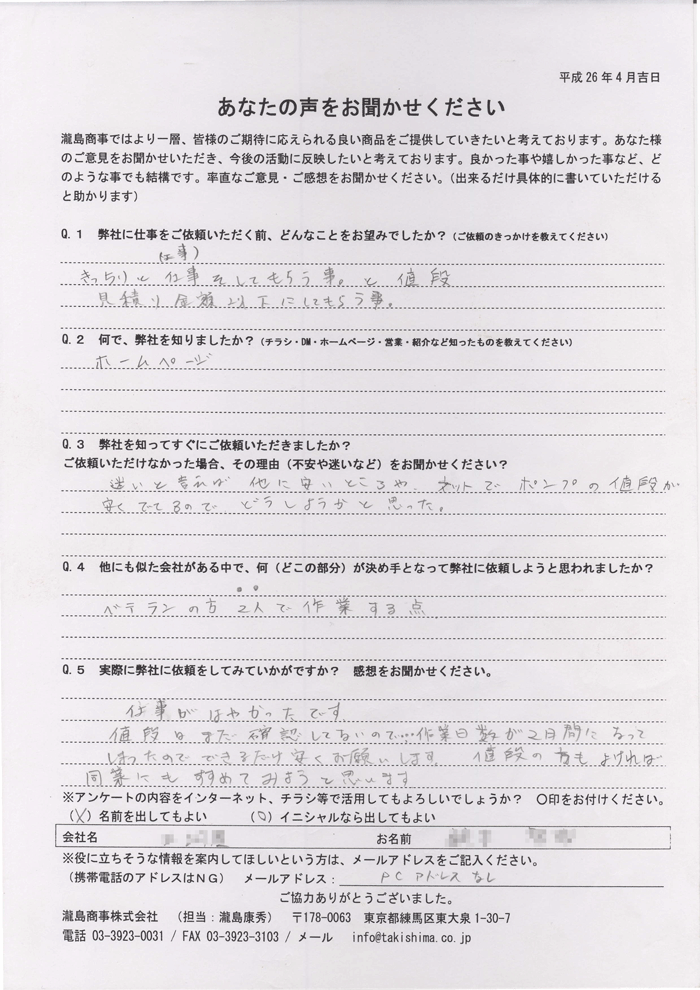 平成26年4月吉日
あなたの声をお聞かせください
瀧島商事ではより一層、皆様のご期待に応えられる良い商品をご提供していきたいと考えております。あなた様
のご意見をお聞かせいただき、今後の活動に反映したいと考えております。良かった事や嬉しかった事など、ど
のような事でも結構です。率直なご意見・ご感想をお聞かせください。(出来るだけ具体的に書いていただける
と助かります)
Q.1 弊社に仕事をご依頼いただく前、どんなことをお望みでしたか?(ご依頼のきっかけを教えてください)
(仕事)
きっちりと仕事をしてもらう事。と 値段
見積り金額以下にしてもらう事。
Q.2 何で、弊社を知りましたか?(チラシ・DM・ホームページ・営業・紹介など知ったものを教えてください)
ホームページ
Q.3 弊社を知ってすぐにご依頼いただきましたか?
ご依頼いただけなかった場合、その理由(不安や迷いなど)をお聞かせください?
迷いと言えば 他に安いところや、ネットで ポンプの値段が
安くでてるので どうしようかと思った。
Q.4 他にも似た会社がある中で、何(どこの部分)が決め手となって弊社に依頼しようと思われましたか?
ベテランの方 2人で作業する点
Q.5 実際に弊社に依頼をしてみていかがですか? 感想をお聞かせください。
仕事がはやかったです
値段はまだ確認してないので…作業日数が2日間になって
しまったのでできるだけ安くお願いします。 値段の方もよければ
同業にもすすめてみようと思います
※アンケートの内容をインターネット、チラシ等で活用してもよろしいでしょうか? ○印をお付けください。
(X)名前を出してもよい (O)イニシャルなら出してもよい
会社名 お名前
※役に立ちそうな情報を案内してほしいという方は、メールアドレスをご記入ください。
(携帯電話のアドレスはNG) メールアドレス: PCアドレスなし
ご協力ありがとうございました。
瀧島商事株式会社 (担当:瀧島康秀) 〒178-0063 東京都練馬区東大泉1-30-7
電話 03-3923-0031 / FAX 03-3923-3103 / メール info@takishima.co.jp